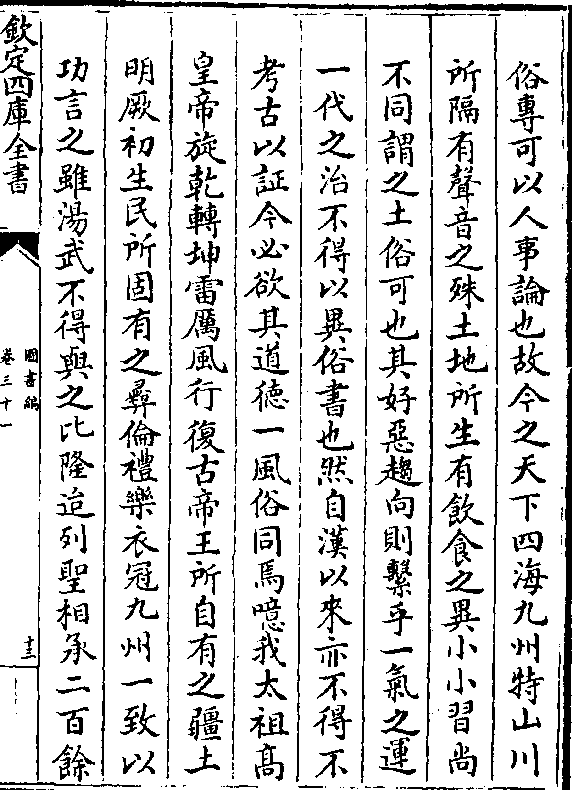 俗專可以人事論也故今之天下四海九州特山川
所隔有聲音之殊土地所生有飲食之異小小習尚
不同謂之土俗可也其好惡趨向則繫乎一氣之運
一代之治不得以異俗書也然自漢以來亦不得不
考古以証今必欲其道德一風俗同焉噫我太祖高
皇帝旋乾轉坤雷厲風行復古帝王所自有之疆土
明厥初生民所固有之彞倫禮樂衣冠九州一致以
功言之雖湯武不得與之比隆迨列聖相承二百餘
欽定四庫全書
圖書編
卷三十一
十三